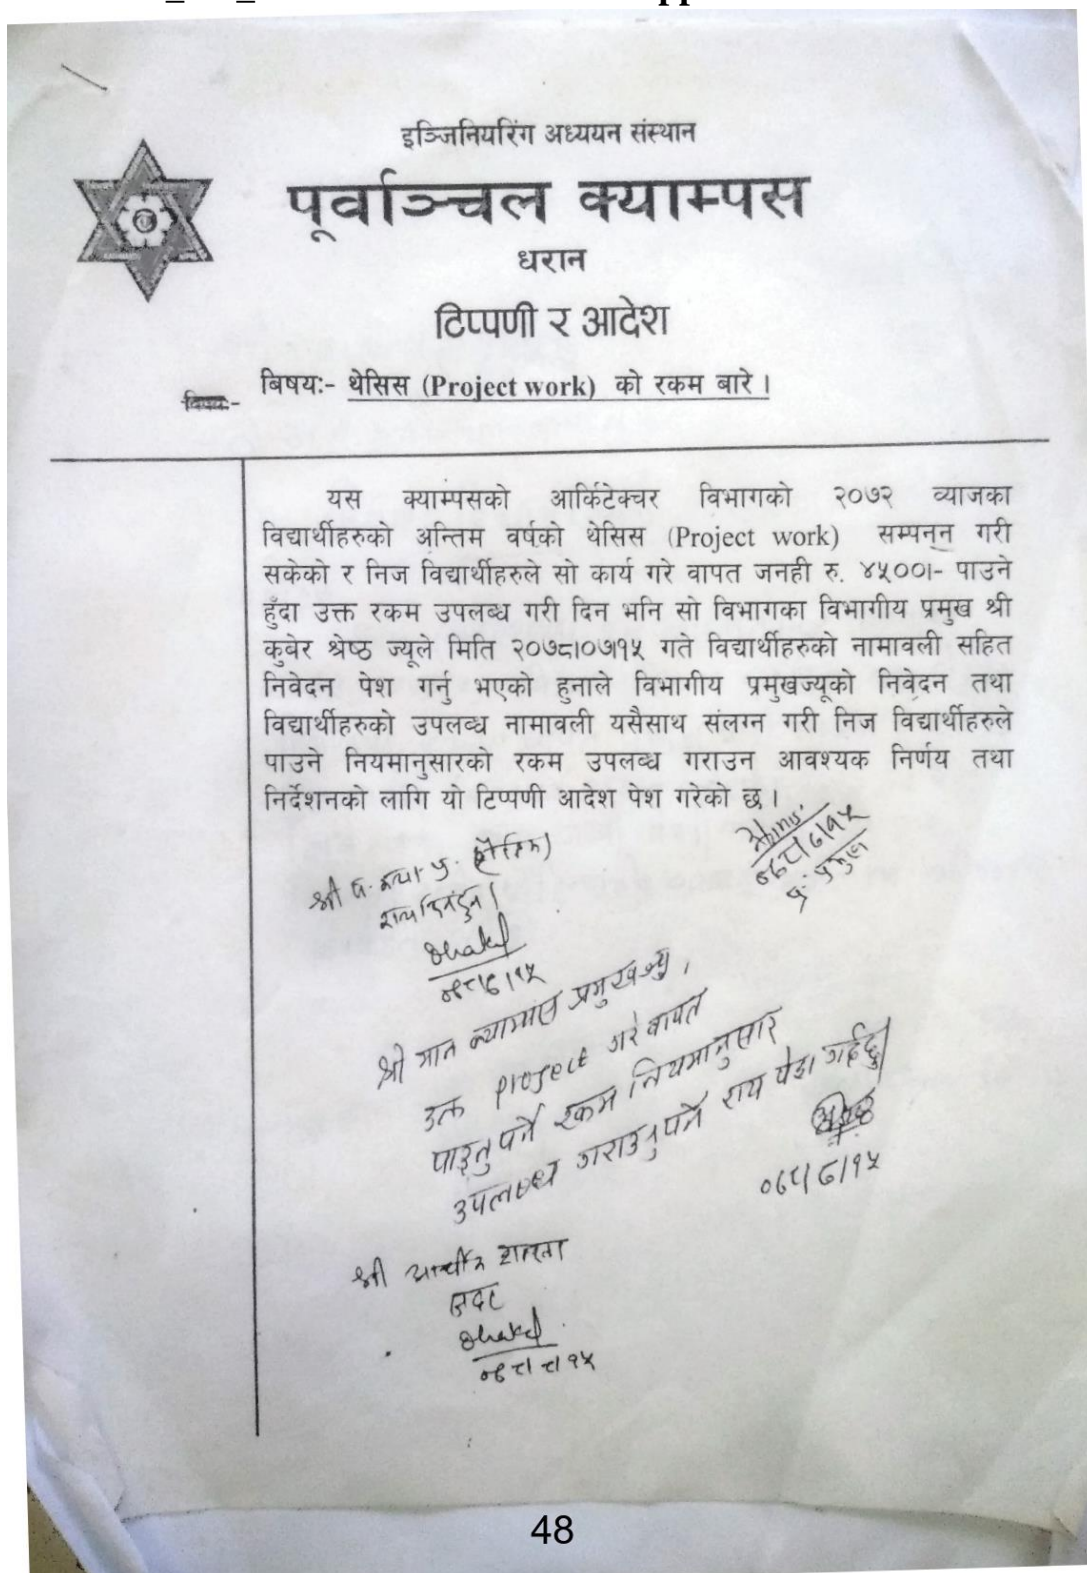 इञ्जिनियरिंग अध्ययन संस्थान
पूर्वाञ्चल क्याम्पस
धरान
टिप्पणी र आदेश
बिषयः- थेसिस (Project work) को रकम बारे ।
यस क्याम्पसको आर्किटेक्चर विभागको २०७२ व्याजका
विद्यार्थीहरुको अन्तिम वर्षको थेसिस (Project work) सम्पनन् गरी
सकेको र निज विद्यार्थीहरुले सो कार्य गरे वापत जनही रु. ४५००।- पाउने
हुँदा उक्त रकम उपलब्ध गरी दिन भनि सो विभागका विभागीय प्रमुख श्री
कुबेर श्रेष्ठ ज्यूले मिति २०७८।०७।१५ गते विद्यार्थीहरुको नामावली सहित
निवेदन पेश गर्नु भएको हुनाले विभागीय प्रमुखज्यूको निवेदन तथा
विद्यार्थीहरुको उपलब्ध नामावली यसैसाथ संलग्न गरी निज विद्यार्थीहरुले
पाउने नियमानुसारको रकम उपलब्ध गराउन आवश्यक निर्णय तथा
निर्देशनको लागि यो टिप्पणी आदेश पेश गरेको छ ।
श्री
राय दिनुहुन ।
श्री मान क्याम्पस प्रमुखज्यु,
उक्त project गरे वापत
पाउनु पर्ने रकम नियमानुसार
उपलब्ध गराउनु पर्ने राय पेश गर्दछु
श्री आर्थिक शाखा
सदर
48